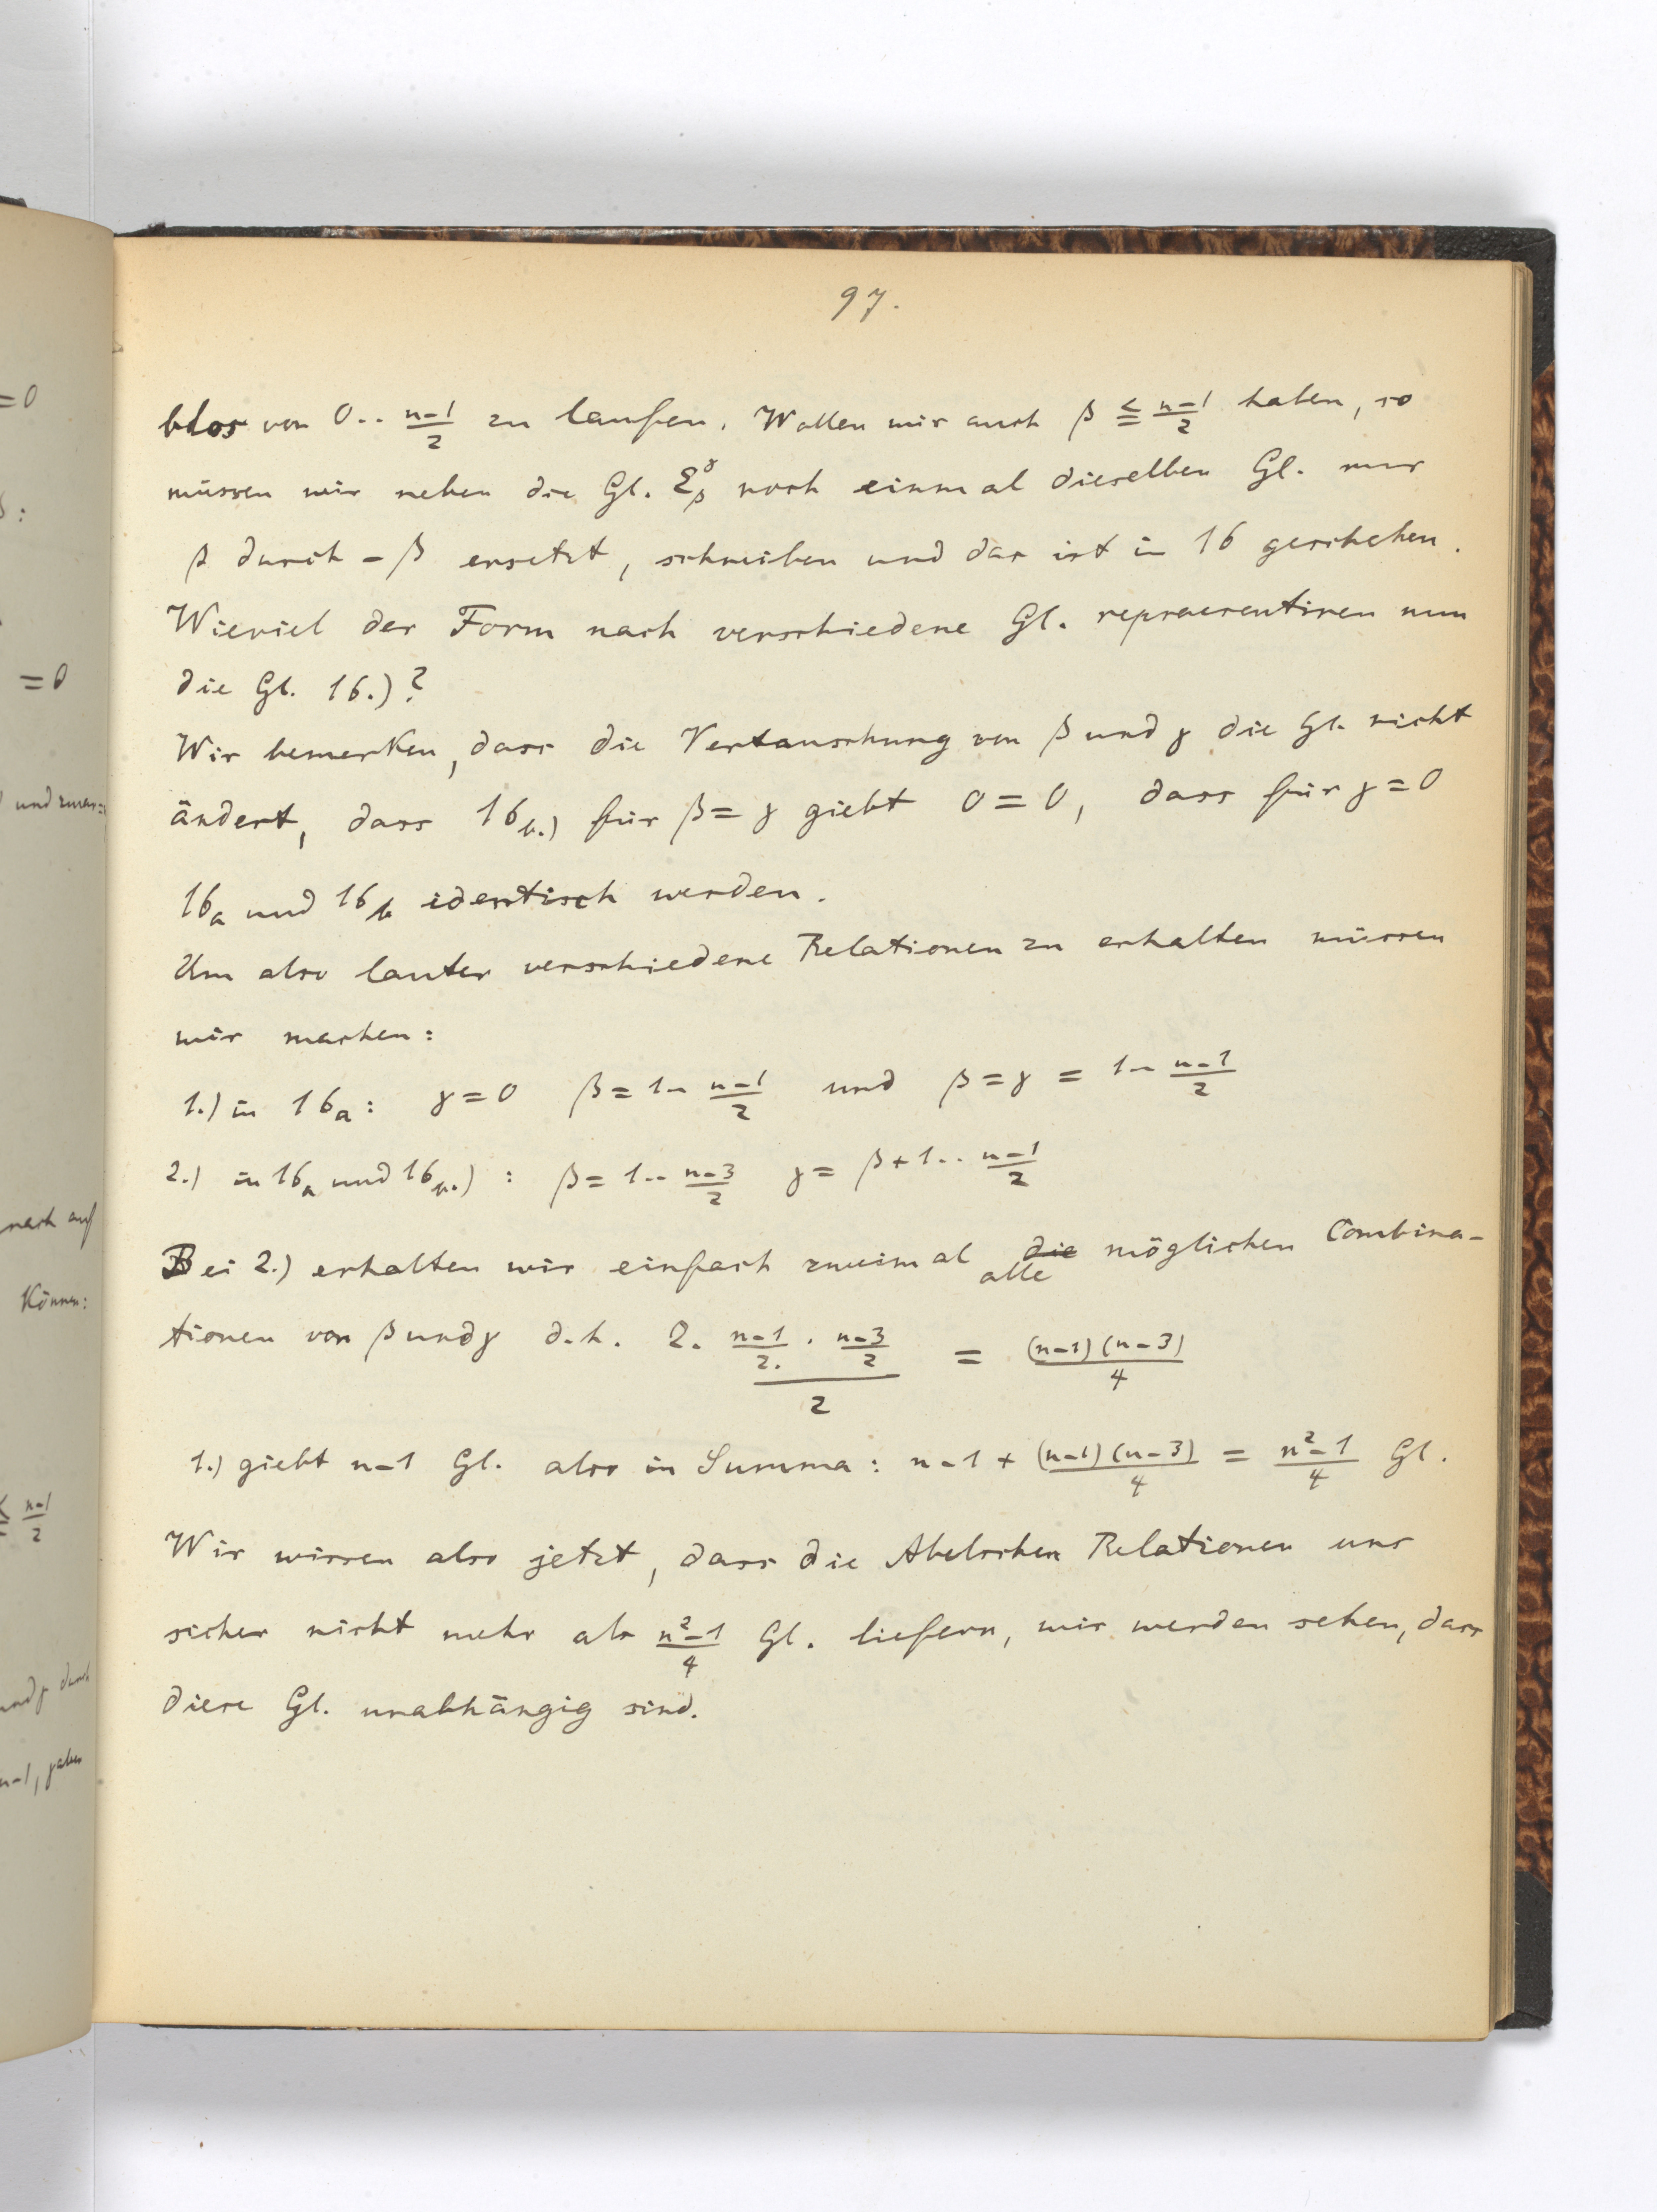 97.
blos von 0.. \frac{n-1}{2} zu laufen. Wollen wir auch β ≦ \frac{n-1}{2} haben, so
müssen wir neben die Gl. Σ_β^γ noch einmal dieselben Gl. nur
β durch -β ersetzt, schreiben und das ist in 16 geschehen.
Wieviel der Form nach verschiedene Gl. repraesentiren nun
die Gl. 16.)?
Wir bemerken, dass die Vertauschung von β und γ die Gl. nicht
ändert, dass 16_b.) für β = γ giebt 0 = 0, dass für γ = 0
16_a und 16_b identisch werden.
Um also lauter verschiedene Relationen zu erhalten müssen
wir machen:
1.) in 16_a: γ = 0 β = 1.. \frac{n-1}{2} und β = γ = 1.. \frac{n-1}{2}
2.) in 16_a und 16_b.) : β = 1.. \frac{n-3}{2} γ = β+1.. \frac{n-1}{2}
Bei 2.) erhalten wir einfach zweimal ~~die~~ alle möglichen Combina-
tionen von β und γ d.h. 2. \frac{\frac{n-1}{2} . \frac{n-3}{2}}{2} = \frac{(n-1)(n-3)}{4}
1.) giebt n-1 Gl. also in Summa: n-1 + \frac{(n-1)(n-3)}{4} = \frac{n^2-1}{4} Gl.
Wir wissen also jetzt, dass die Abelschen Relationen uns
sicher nicht mehr als \frac{n^2-1}{4} Gl. liefern, wir werden sehen, dass
diese Gl. unabhängig sind.
=0
=0
und zwar:
nach auf
Können:
≦ \frac{n-1}{2}
n-1,